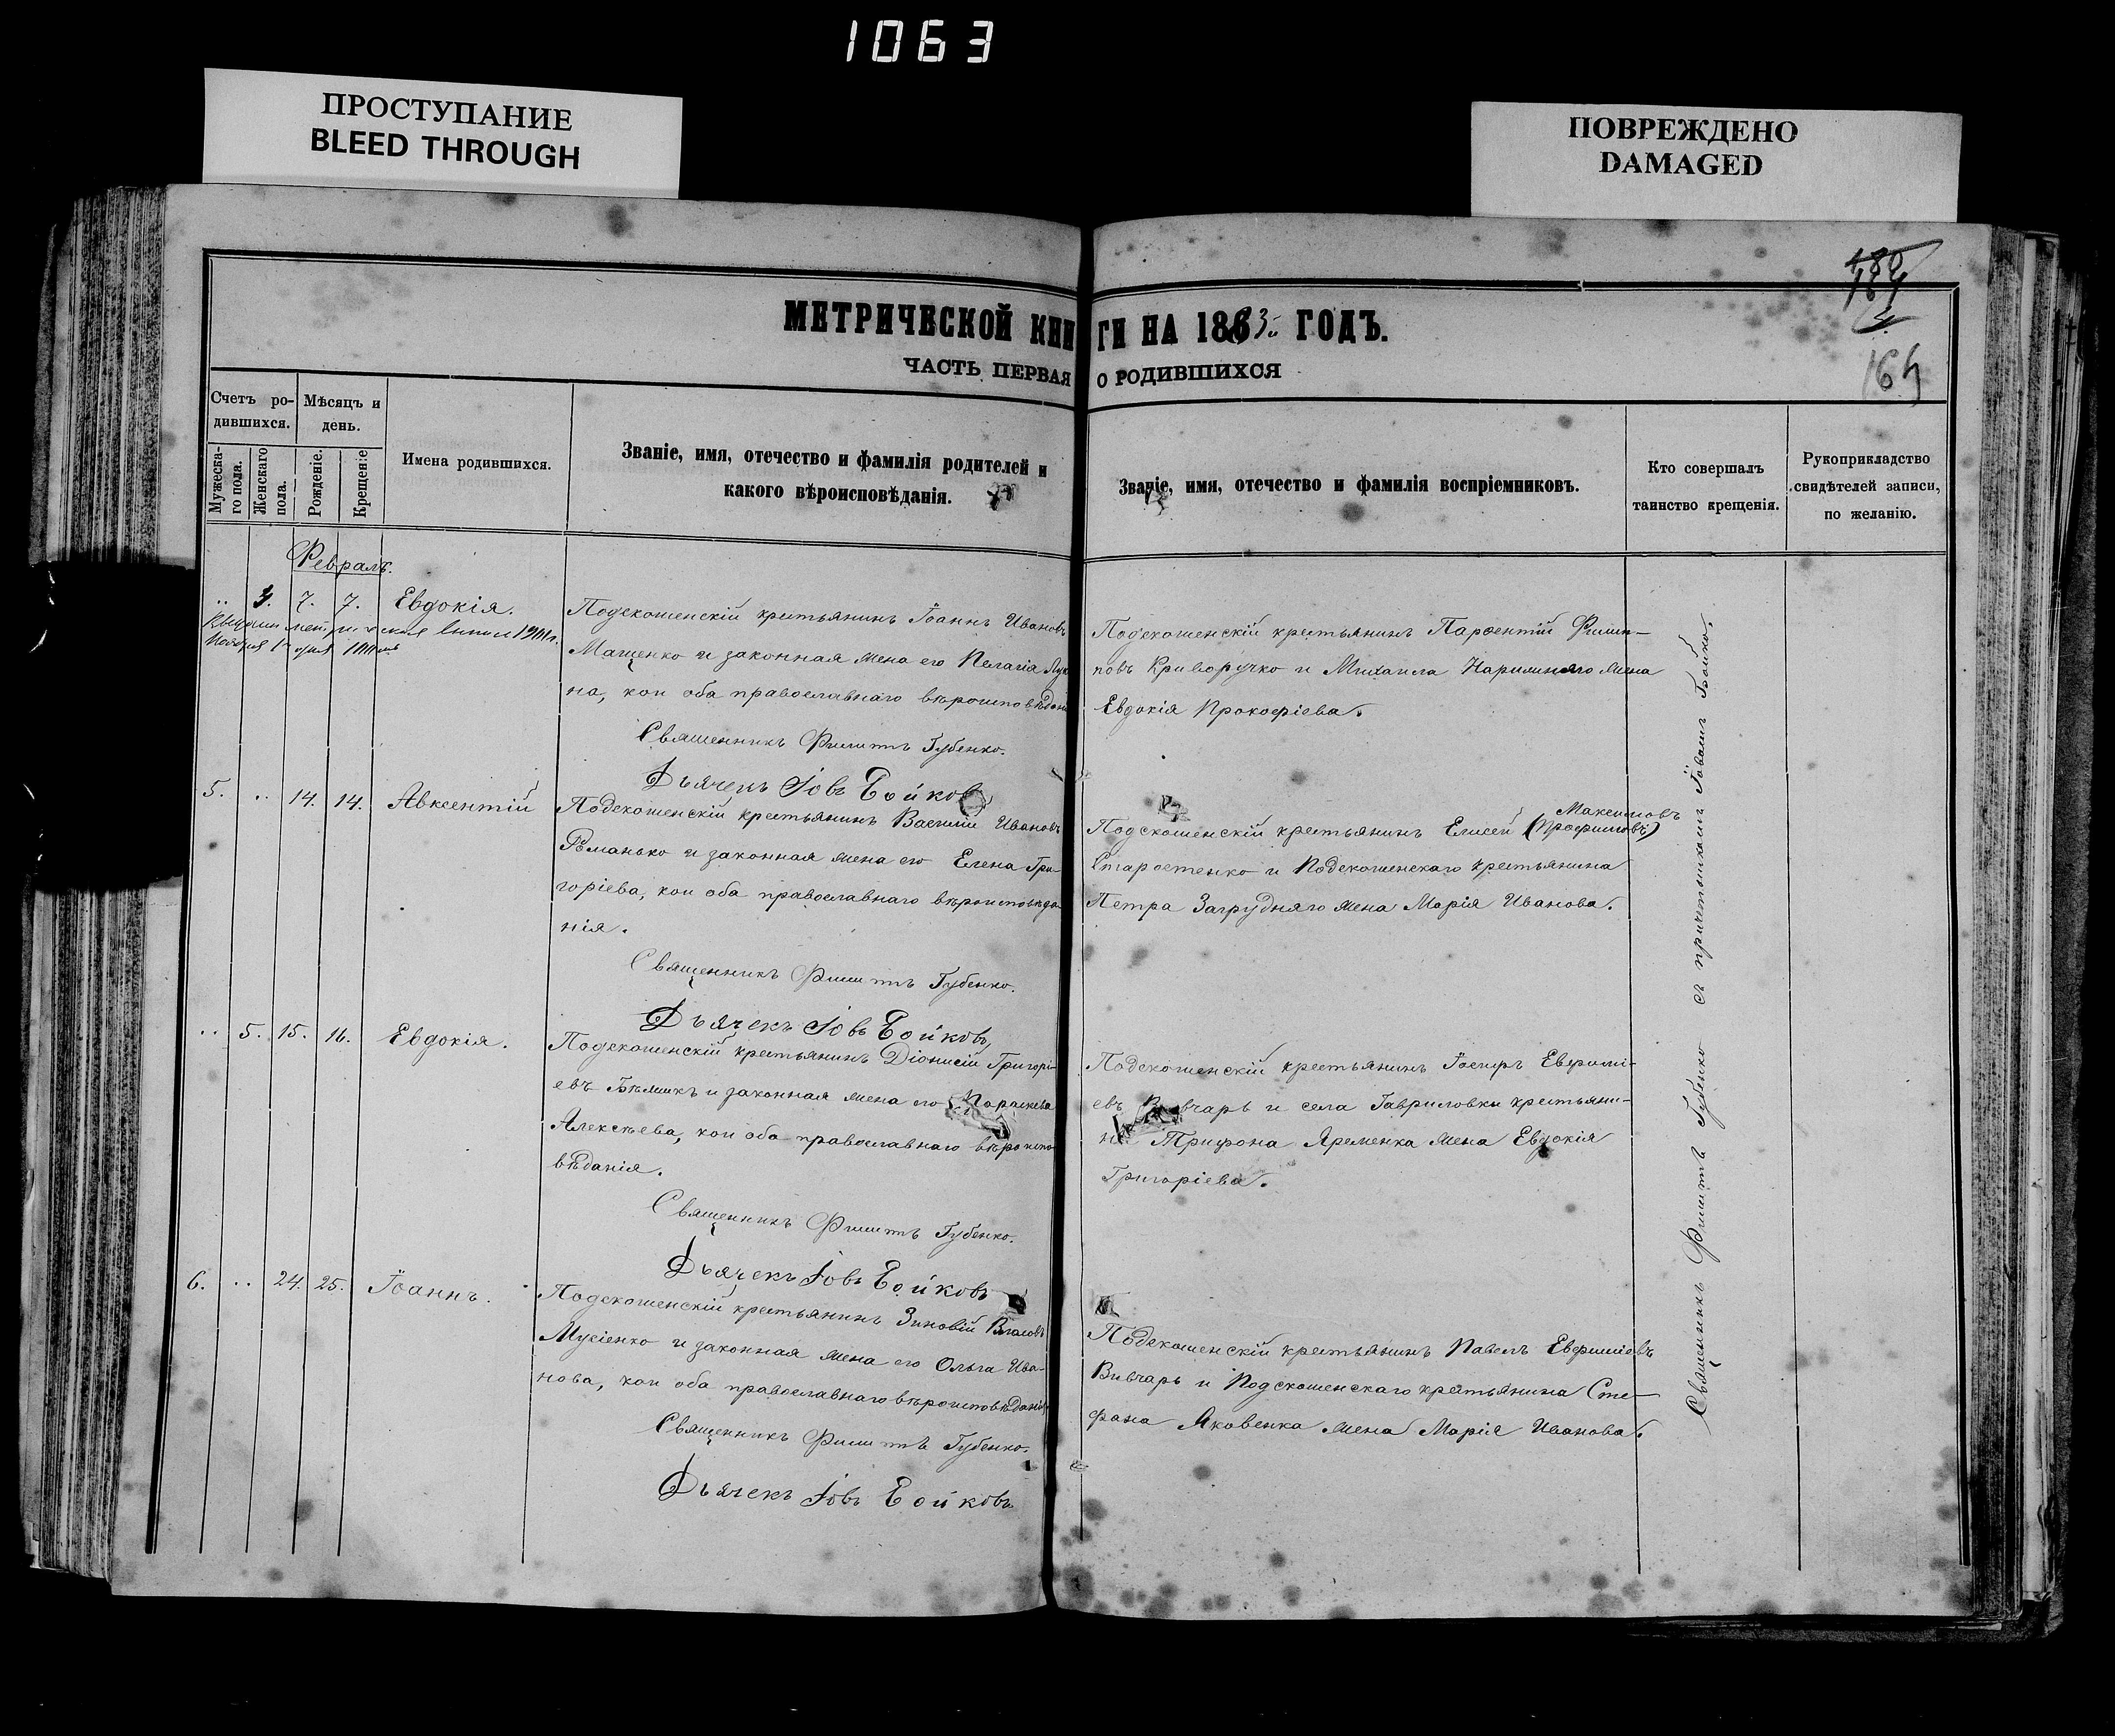 1063
ПРОСТУПАНИЕ
BLEED THROUGH
ПОВРЕЖДЕНО
DAMAGED
164
МЕТРИЧЕСКОЙ КНИГИ НА 1883й ГОДЪ.
ЧАСТЬ ПЕРВАЯ О РОДИВШИХСЯ
Счетъ ро-
дившихся.
Мѣсяцъ и
день.
Мужеска-
го пола.
Женскаго
пола.
Рожденіе.
Крещеніе
Имена родившихся.
Званіе, имя, отечество и фамилія родителей и
какого вѣроисповѣданія.
Званіе, имя, отечество и фамилія воспріемниковъ.
Кто совершалъ
таинство крещенія.
Рукоприкладство
свидѣтелей записи,
по желанію.
Февраль.
.. 4. 7. 7. Евдокія.
Ноября 1 дня
Подскошенскій крестьянинъ Іоаннъ Ивановъ
Мащенко и законная жена его Пелагія
на, кои оба православнаго вѣроисповѣданія
Священникъ Филиппъ Губенко.
Дьячекъ Іовъ Бойковъ
Подскошенскій крестьянинъ Парѳентій Филип-
повъ Криворучко и Михаила Нарижняго жена
Евдокія Прокофіева.
5. .. 14. 14. Авксентій
Подскошенскій крестьянинъ Василій Ивановъ
Романько и законная жена его Елена Гри-
горіева, кои оба православнаго вѣроисповѣда-
нія.
Священникъ Филиппъ Губенко.
Дьячекъ Іовъ Бойковъ
Максимовъ
Подскошенскій крестьянинъ Елисей (Трофимовъ)
Старостенко и Подскошенскаго крестьянина
Петра Загрудняго жена Марія Иванова.
.. 5. 15. 16. Евдокія.
Подскошенскій крестьянинъ Діонисій Григорі-
евъ Бѣликъ и законная жена его Параскева
Алексѣева, кои оба православнаго вѣроиспо-
вѣданія.
Священникъ Филиппъ Губенко.
Дьячекъ Іовъ Бойковъ
Подскошенскій крестьянинъ Іосифъ Евфимі-
евъ Вивчарь и села Гавриловки крестьяни-
на Трифона Яременка жена Евдокія
Григоріева.
6. .. 24. 25. Іоаннъ.
Подскошенскій крестьянинъ Зиновій Власовъ
Мусіенко и законная жена его Ольга Ива-
нова, кои оба православнаго вѣроисповѣданія
Священникъ Филиппъ Губенко.
Дьячекъ Іовъ Бойковъ
Подскошенскій крестьянинъ Павелъ Евфиміевъ
Вивчарь и Подскошенскаго крестьянина Сте-
фана Яковенка жена Марія Иванова.
Священникъ Филиппъ Губенко съ причетникомъ Іовомъ Бойко.